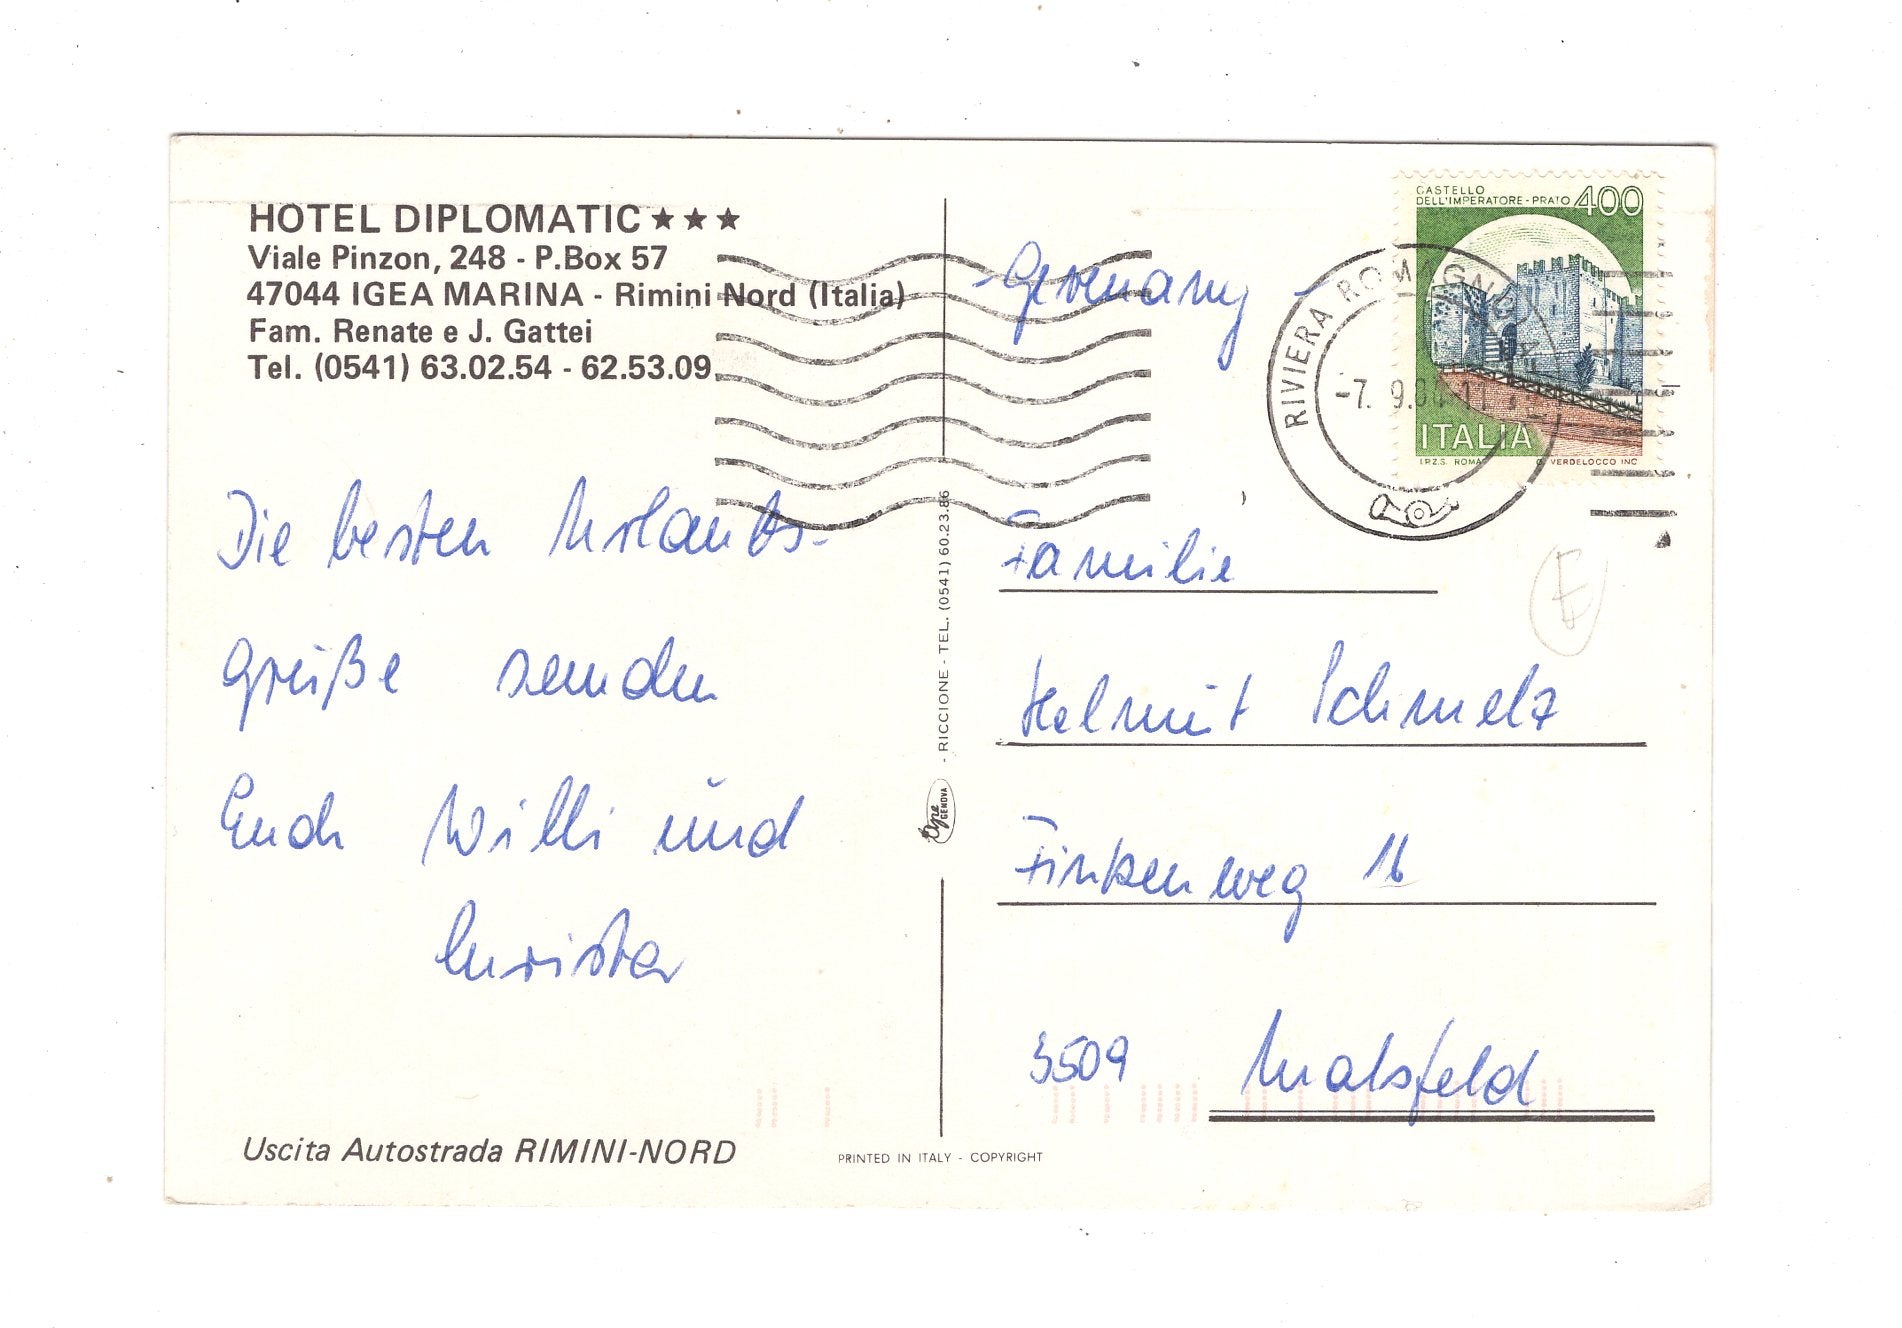 HOTEL DIPLOMATIC ★★★
Viale Pinzon, 248 - P.Box 57
47044 IGEA MARINA - Rimini Nord (Italia)
Fam. Renate e J. Gattei
Tel. (0541) 63.02.54 - 62.53.09
Die besten Urlaubs-
grüße senden
Euch Willi und
Christa
Uscita Autostrada RIMINI-NORD
- RICCIONE - TEL. (0541) 60.23.86
GENOVA
PRINTED IN ITALY - COPYRIGHT
CASTELLO
DELL'IMPERATORE - PRATO 400
ITALIA
I.P.Z.S. ROMA VERDELOCCO INC
RIVIERA
-7. 9.
-Germany-
Familie
Helmut Schmelz
Finkenweg 16
3509 Malsfeld
E